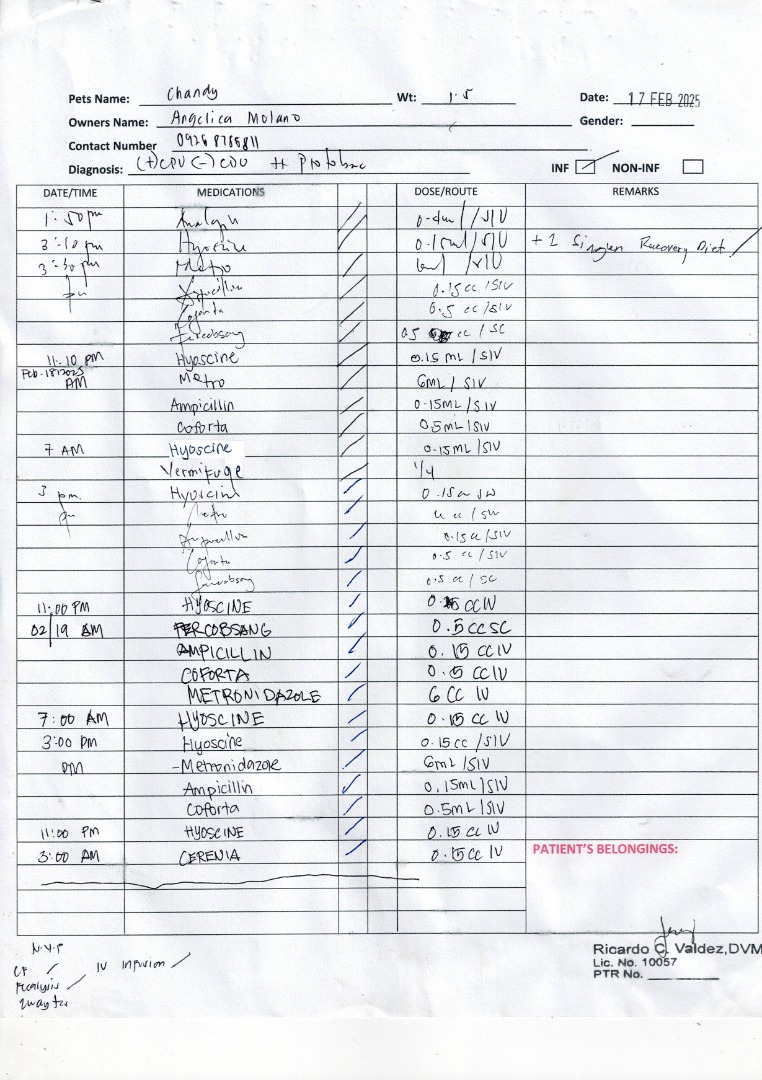 Pets Name: Chandy Wt: 1.5 Date: 17 FEB 2025
Owners Name: Angelica Molano Gender:
Contact Number
Diagnosis: (+)CPV (-)CDV INF NON-INF
DATE/TIME MEDICATIONS DOSE/ROUTE REMARKS
1:50 pm
3:10 pm Hyoscine 0.15ml/SIV +1 Recovery Diet
3:30 pm Metro /SIV
0.15 cc /SIV
Coforta 0.5 cc /SIV
0.5 cc / SC
11:10 PM Hyoscine 0.15 mL / SIV
Feb-18-2025
AM Metro 6mL / SIV
Ampicillin 0.15mL / SIV
Coforta 0.5mL /SIV
7 AM Hyoscine 0.15mL /SIV
Vermifuge 1/4
3 pm.
Metro
0.15cc /SIV
Coforta 0.5 cc /SIV
0.5 cc / SC
11:00 PM HYOSCINE CC IV
02/19 AM FERCOBSANG 0.5 CC SC
AMPICILLIN 0.15 CC IV
COFORTA 0.5 CC IV
METRONIDAZOLE 6 CC IV
7:00 AM HYOSCINE 0.15 CC IV
3:00 PM Hyoscine 0.15 cc /SIV
PM -Metronidazole 6mL /SIV
Ampicillin 0.15mL /SIV
Coforta 0.5mL /SIV
11:00 PM HYOSCINE 0.15 CC IV
3:00 AM CERENIA 0.15 CC IV
PATIENT'S BELONGINGS:
N.Y.P
CF IV Infusion
Ricardo C. Valdez,DVM
Lic. No. 10057
PTR No.